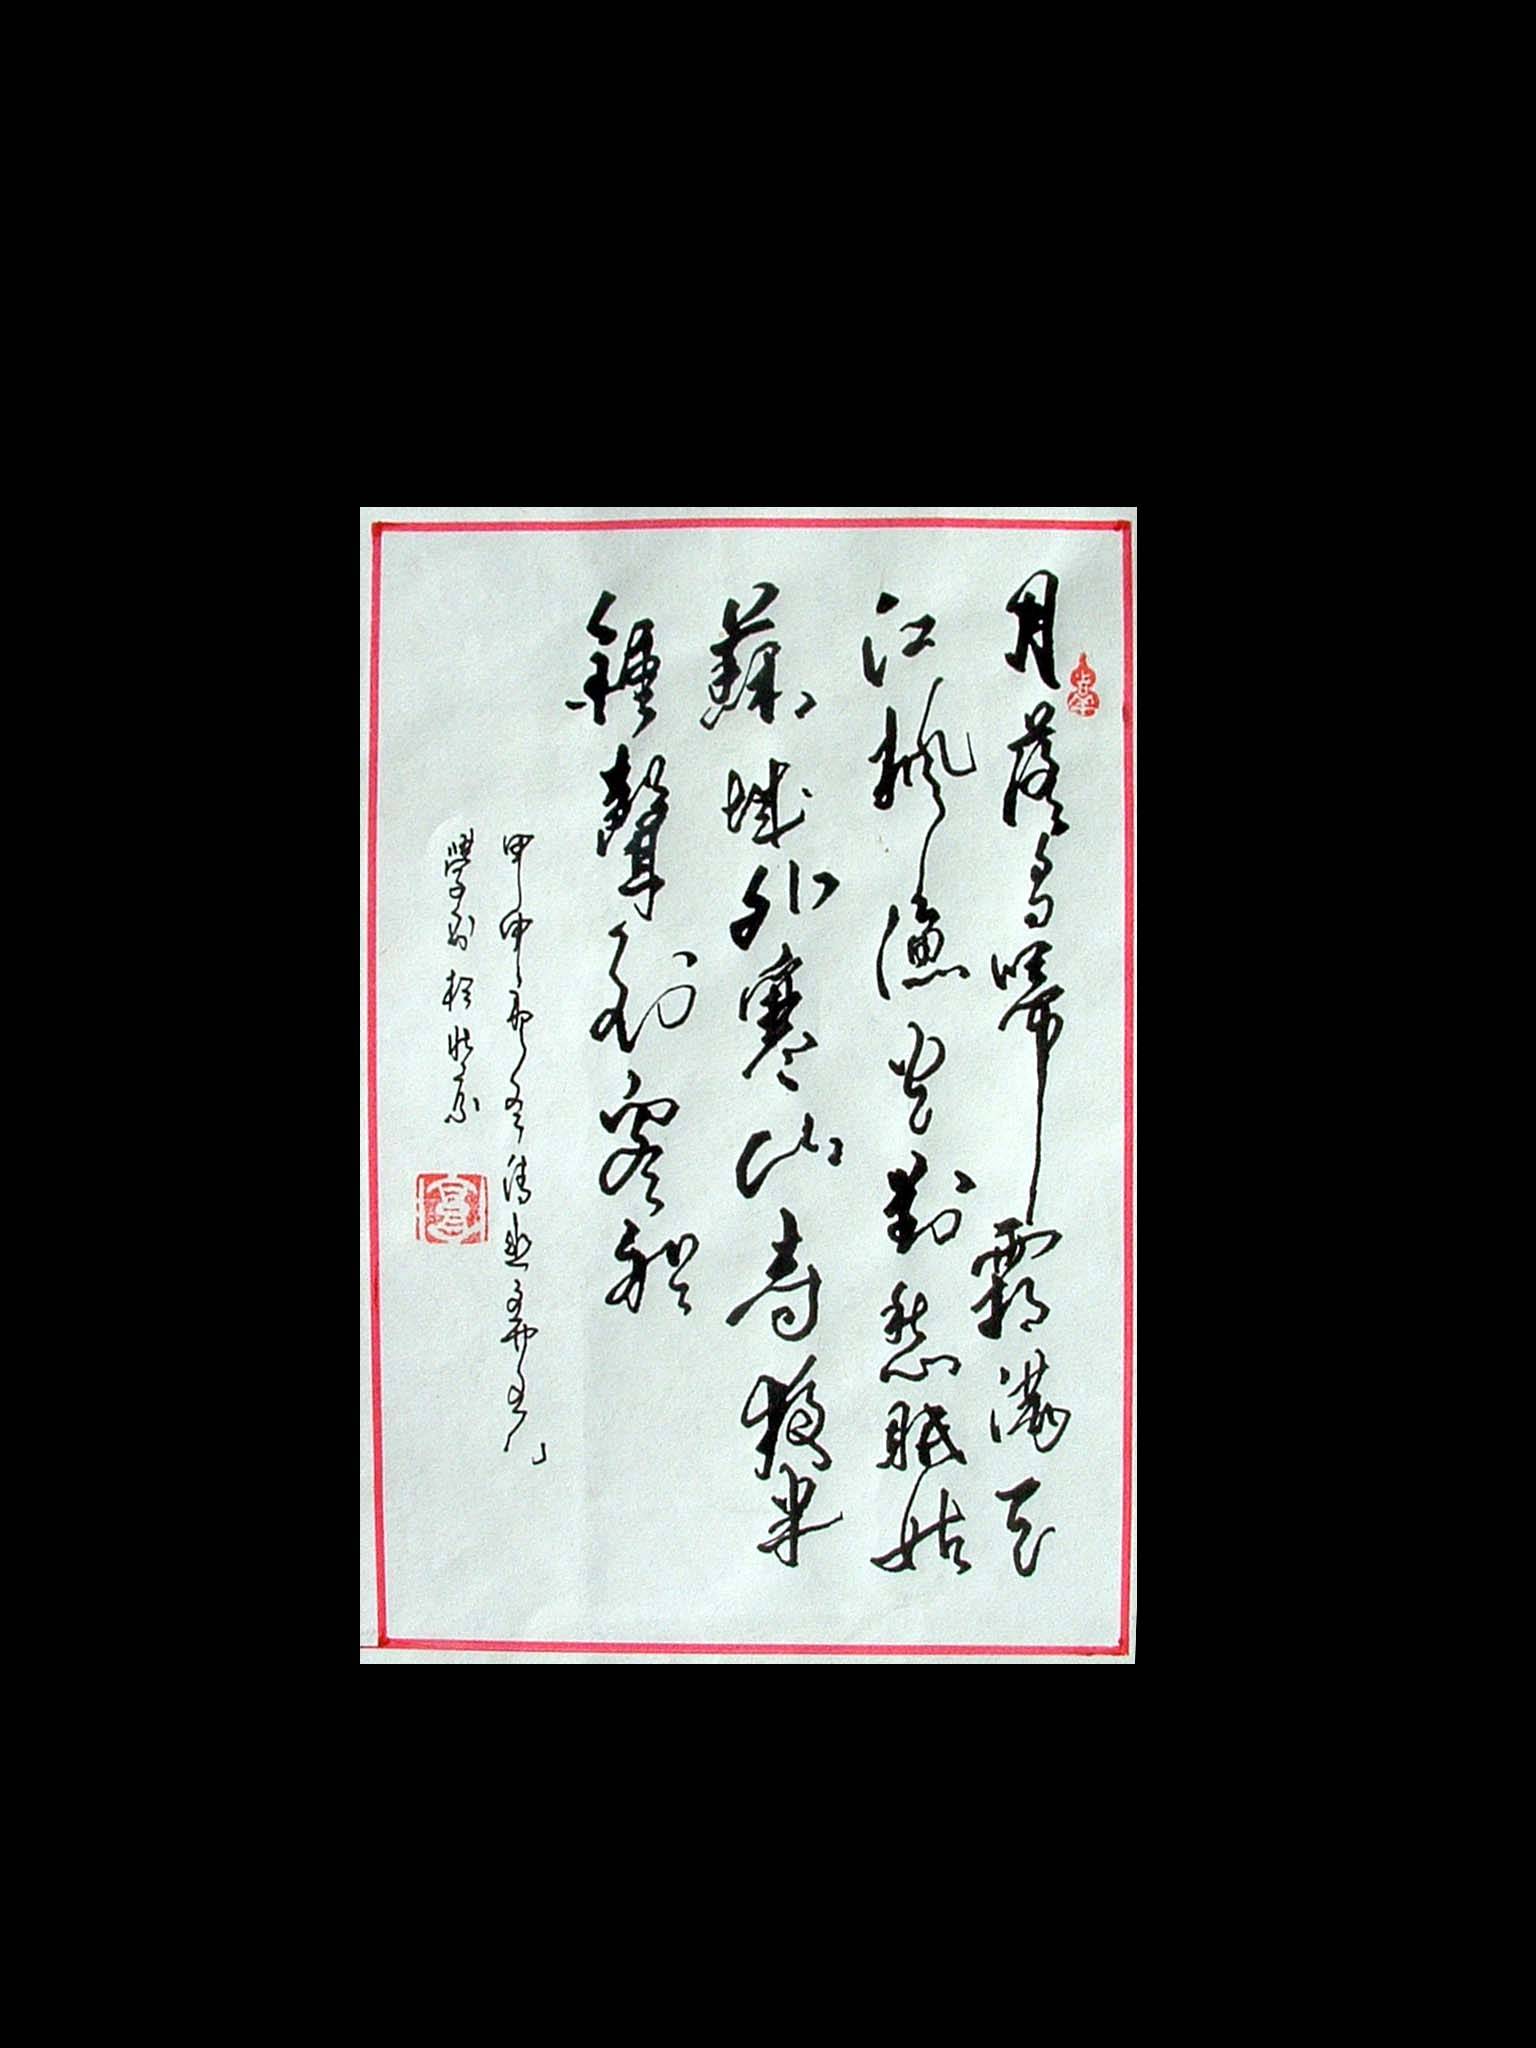 月落烏啼霜滿天
江楓漁火對愁眠姑
蘇城外寒山寺夜半
鐘聲到客船
甲申
學書於